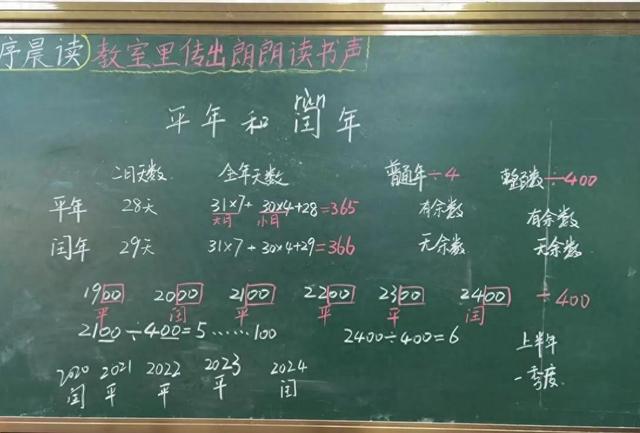 序晨读 教室里传出朗朗读书声
rùn
平年和闰年
二月天数 全年天数 普通年÷4 整百数÷400
平年 28天 31×7+30×4+28=365 有余数 有余数
大月 小月
闰年 29天 31×7+30×4+29=366 无余数 无余数
1900 2000 2100 2200 2300 2400 ÷400
平 闰 平 平 平 闰
2100÷400=5……100 2400÷400=6 上半年
2020 2021 2022 2023 2024 一季度
闰 平 平 平 闰